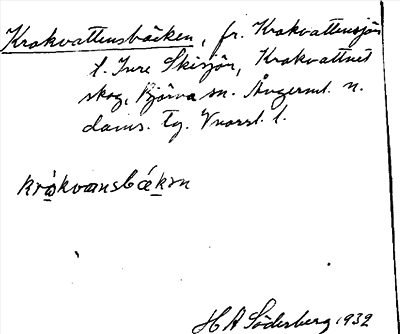 Krokvattensbäcken, fr. Krokvattensjön
t. Inre Skisjön, Krokvattnet
skog, Björna sn. Ångerml. n.
doms. Tg.
krokvansbäkən
H A Söderberg 1932